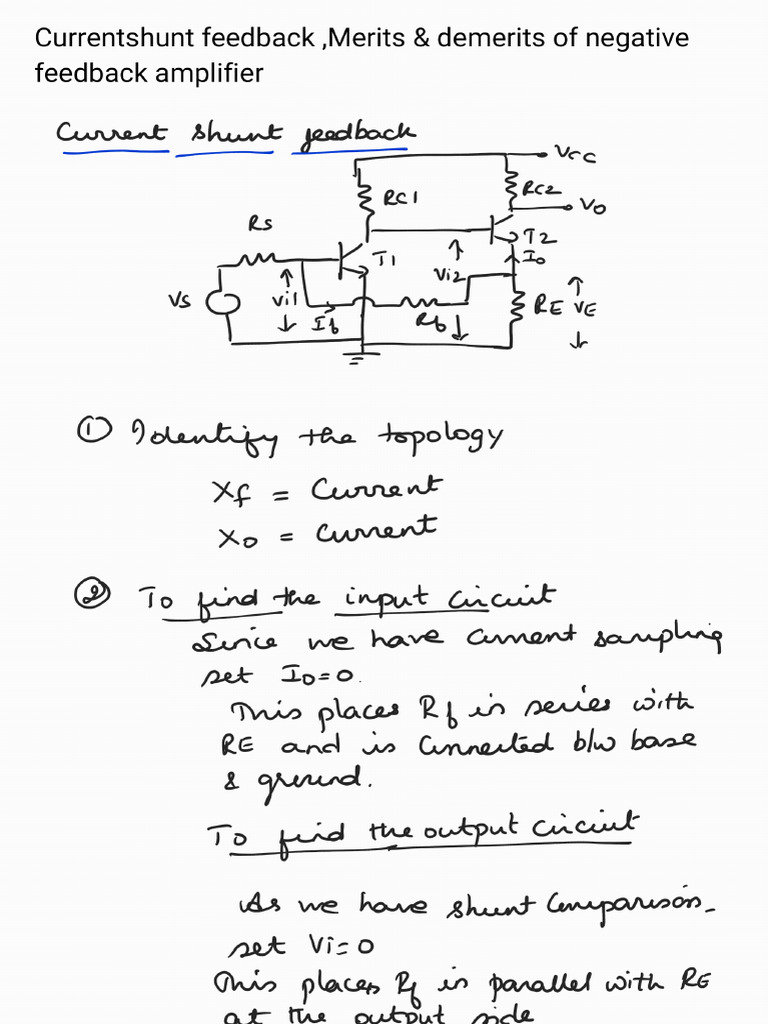 Currentshunt feedback ,Merits & demerits of negative
feedback amplifier
Current shunt feedback
Vcc
RC1
RC2
Vo
Rs
T2
T1
Io
Vi2
Vs
Vi1
RE VE
If
Rf
① Identify the topology
Xf = Current
Xo = Current
② To find the input circuit
Since we have current sampling
set Io=0.
This places Rf in series with
RE and is connected b/w base
& ground.
To find the output circuit
As we have shunt Comparison
set Vi=0
This places Rf in parallel with RE
at the output side